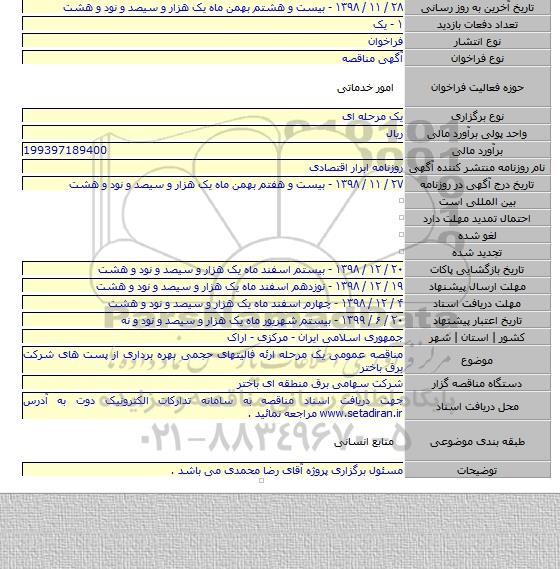 تاریخ آخرین به روز رسانی ۲۸ / ۱۱ / ۱۳۹۸ - بیست و هشتم بهمن ماه یک هزار و سیصد و نود و هشت
تعداد دفعات بازدید ۱ - یک
نوع انتشار فراخوان
نوع فراخوان آگهی مناقصه
حوزه فعالیت فراخوان امور خدماتی
نوع برگزاری یک مرحله ای
واحد پولی برآورد مالی ریال
برآورد مالی 199397189400
نام روزنامه منتشر کننده آگهی روزنامه ابرار اقتصادی
تاریخ درج آگهی در روزنامه ۲۷ / ۱۱ / ۱۳۹۸ - بیست و هفتم بهمن ماه یک هزار و سیصد و نود و هشت
بین المللی است
احتمال تمدید مهلت دارد
لغو شده
تجدید شده
تاریخ بازگشایی پاکات ۲۰ / ۱۲ / ۱۳۹۸ - بیستم اسفند ماه یک هزار و سیصد و نود و هشت
مهلت ارسال پیشنهاد ۱۹ / ۱۲ / ۱۳۹۸ - نوزدهم اسفند ماه یک هزار و سیصد و نود و هشت
مهلت دریافت اسناد ۴ / ۱۲ / ۱۳۹۸ - چهارم اسفند ماه یک هزار و سیصد و نود و هشت
تاریخ اعتبار پیشنهاد ۲۰ / ۶ / ۱۳۹۹ - بیستم شهریور ماه یک هزار و سیصد و نود و نه
کشور | استان | شهر جمهوری اسلامی ایران - مرکزی - اراک
موضوع مناقصه عمومی یک مرحله ارئه فالیتهای حجمی بهره برداری از پست های شرکت
برق باختر
دستگاه مناقصه گزار شرکت سهامی برق منطقه ای باختر
محل دریافت اسناد جهت دریافت اسناد مناقصه به سامانه تدارکات الکترونیک دوت به آدرس
www.setadiran.ir مراجعه نمائید .
طبقه بندی موضوعی منابع انسانی
توضیحات مسئول برگزاری پروژه آقای رضا محمدی می باشد .
۰۲۱-۸۸۳۴۹۶۷۰-۵